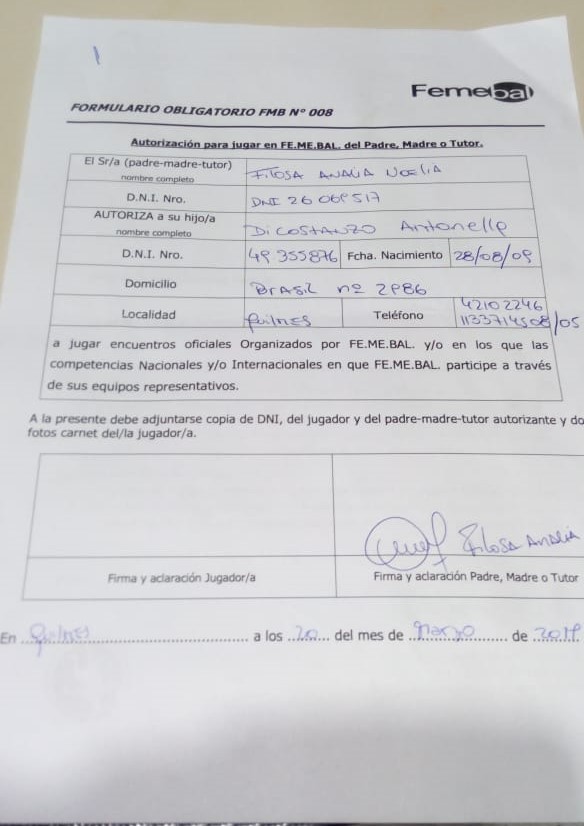 1
Femebal
FORMULARIO OBLIGATORIO FMB N° 008
Autorización para jugar en FE.ME.BAL. del Padre, Madre o Tutor.
El Sr/a (padre-madre-tutor)
nombre completo
FILOSA ANALIA NOELIA
D.N.I. Nro.
DNI 26 069517
AUTORIZA a su hijo/a
nombre completo
Di COSTANZO Antonella
D.N.I. Nro.
49 355876
Fcha. Nacimiento
28/08/09
Domicilio
BrASil nº 2986
Localidad
Quilmes
Teléfono
42102246
1133714508/05
a jugar encuentros oficiales Organizados por FE.ME.BAL. y/o en los que las
competencias Nacionales y/o Internacionales en que FE.ME.BAL. participe a través
de sus equipos representativos.
A la presente debe adjuntarse copia de DNI, del jugador y del padre-madre-tutor autorizante y do
fotos carnet del/la jugador/a.
Filosa Analia
Firma y aclaración Jugador/a
Firma y aclaración Padre, Madre o Tutor
En Quilmes a los 20 del mes de Marzo de